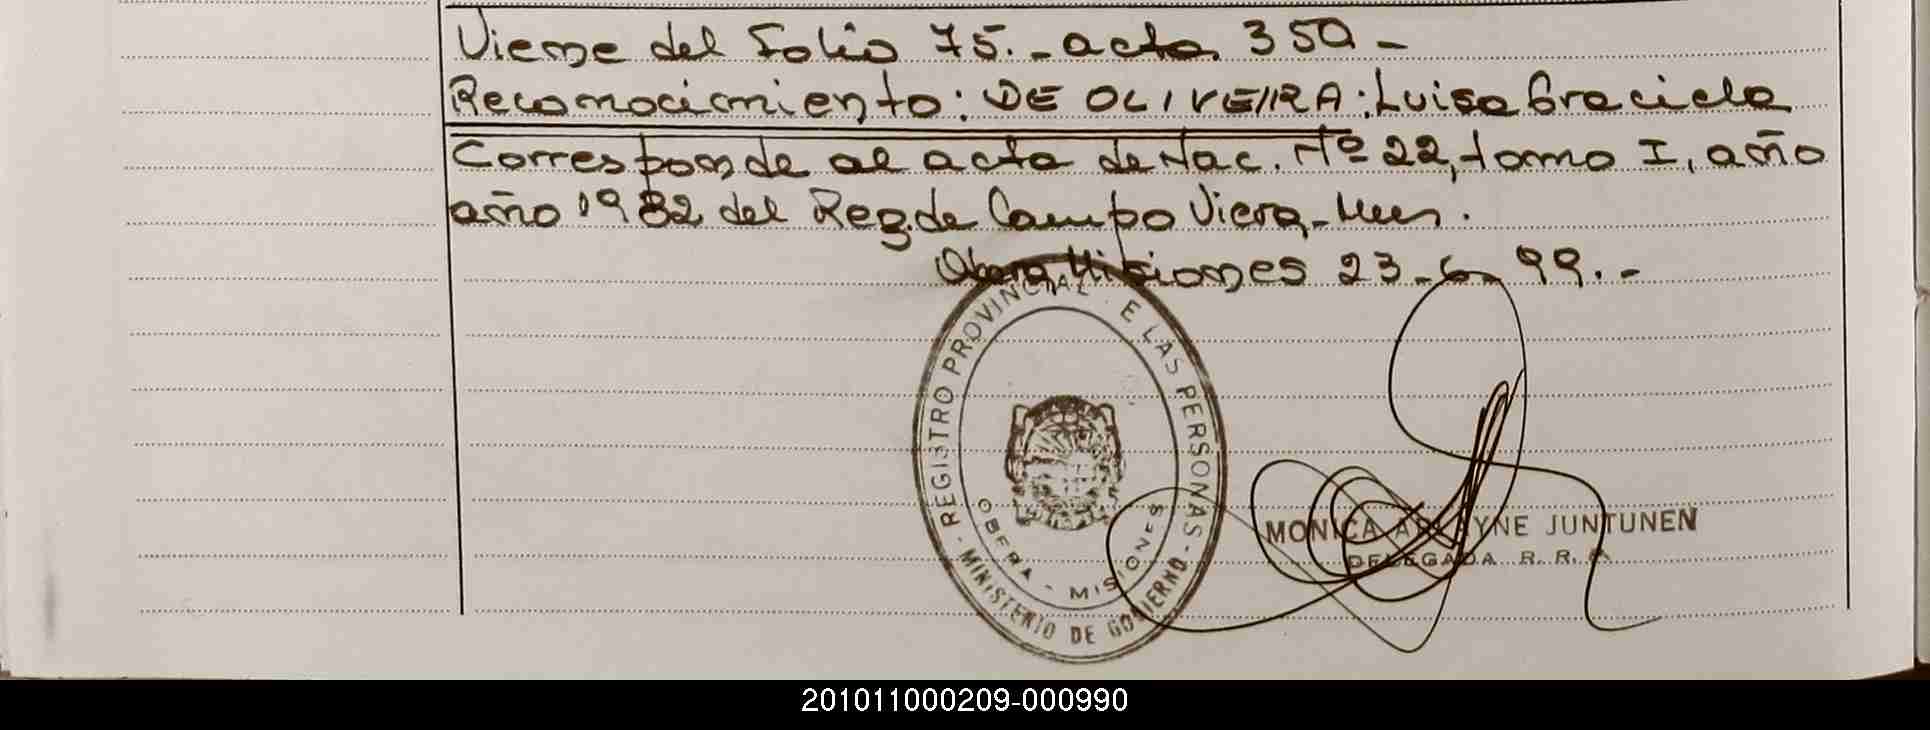 Viene del Folio 75.- acta 350 -
Reconocimiento: DE OLIVEIRA: Luisa Graciela
Corresponde al acta de Nac. Nº 22, tomo I, año
año 1982 del Reg. de Campo Viera,- Mnes.
Obera, Misiones 23-6-99.-
REGISTRO PROVINCIAL E LAS PERSONAS -
OBERA - MISIONES
MINISTERIO DE GOBIERNO -
MONICA JUNTUNEN
DELEGADA R. R.
201011000209-000990